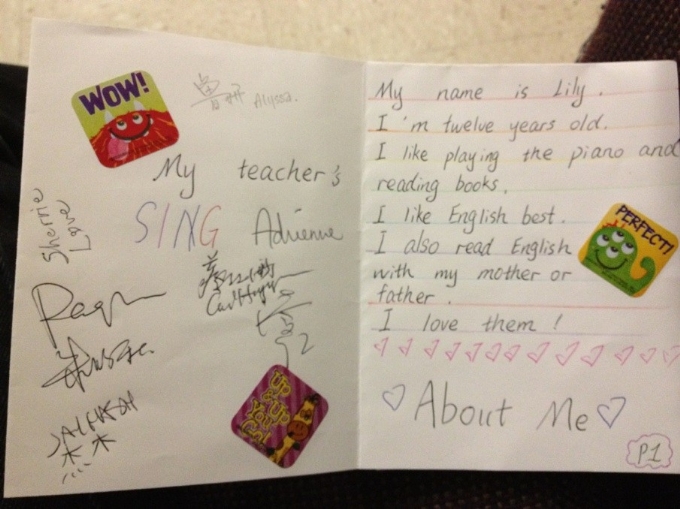 WOW!
Alyssa.
My teacher's
SING
Adrienne
Sherrie
Love
UP
& UP
YOU
GO!
My name is Lily.
I'm twelve years old.
I like playing the piano and
reading books.
I like English best.
PERFECT!
I also read English
with my mother or
father.
I love them!
About Me
P1